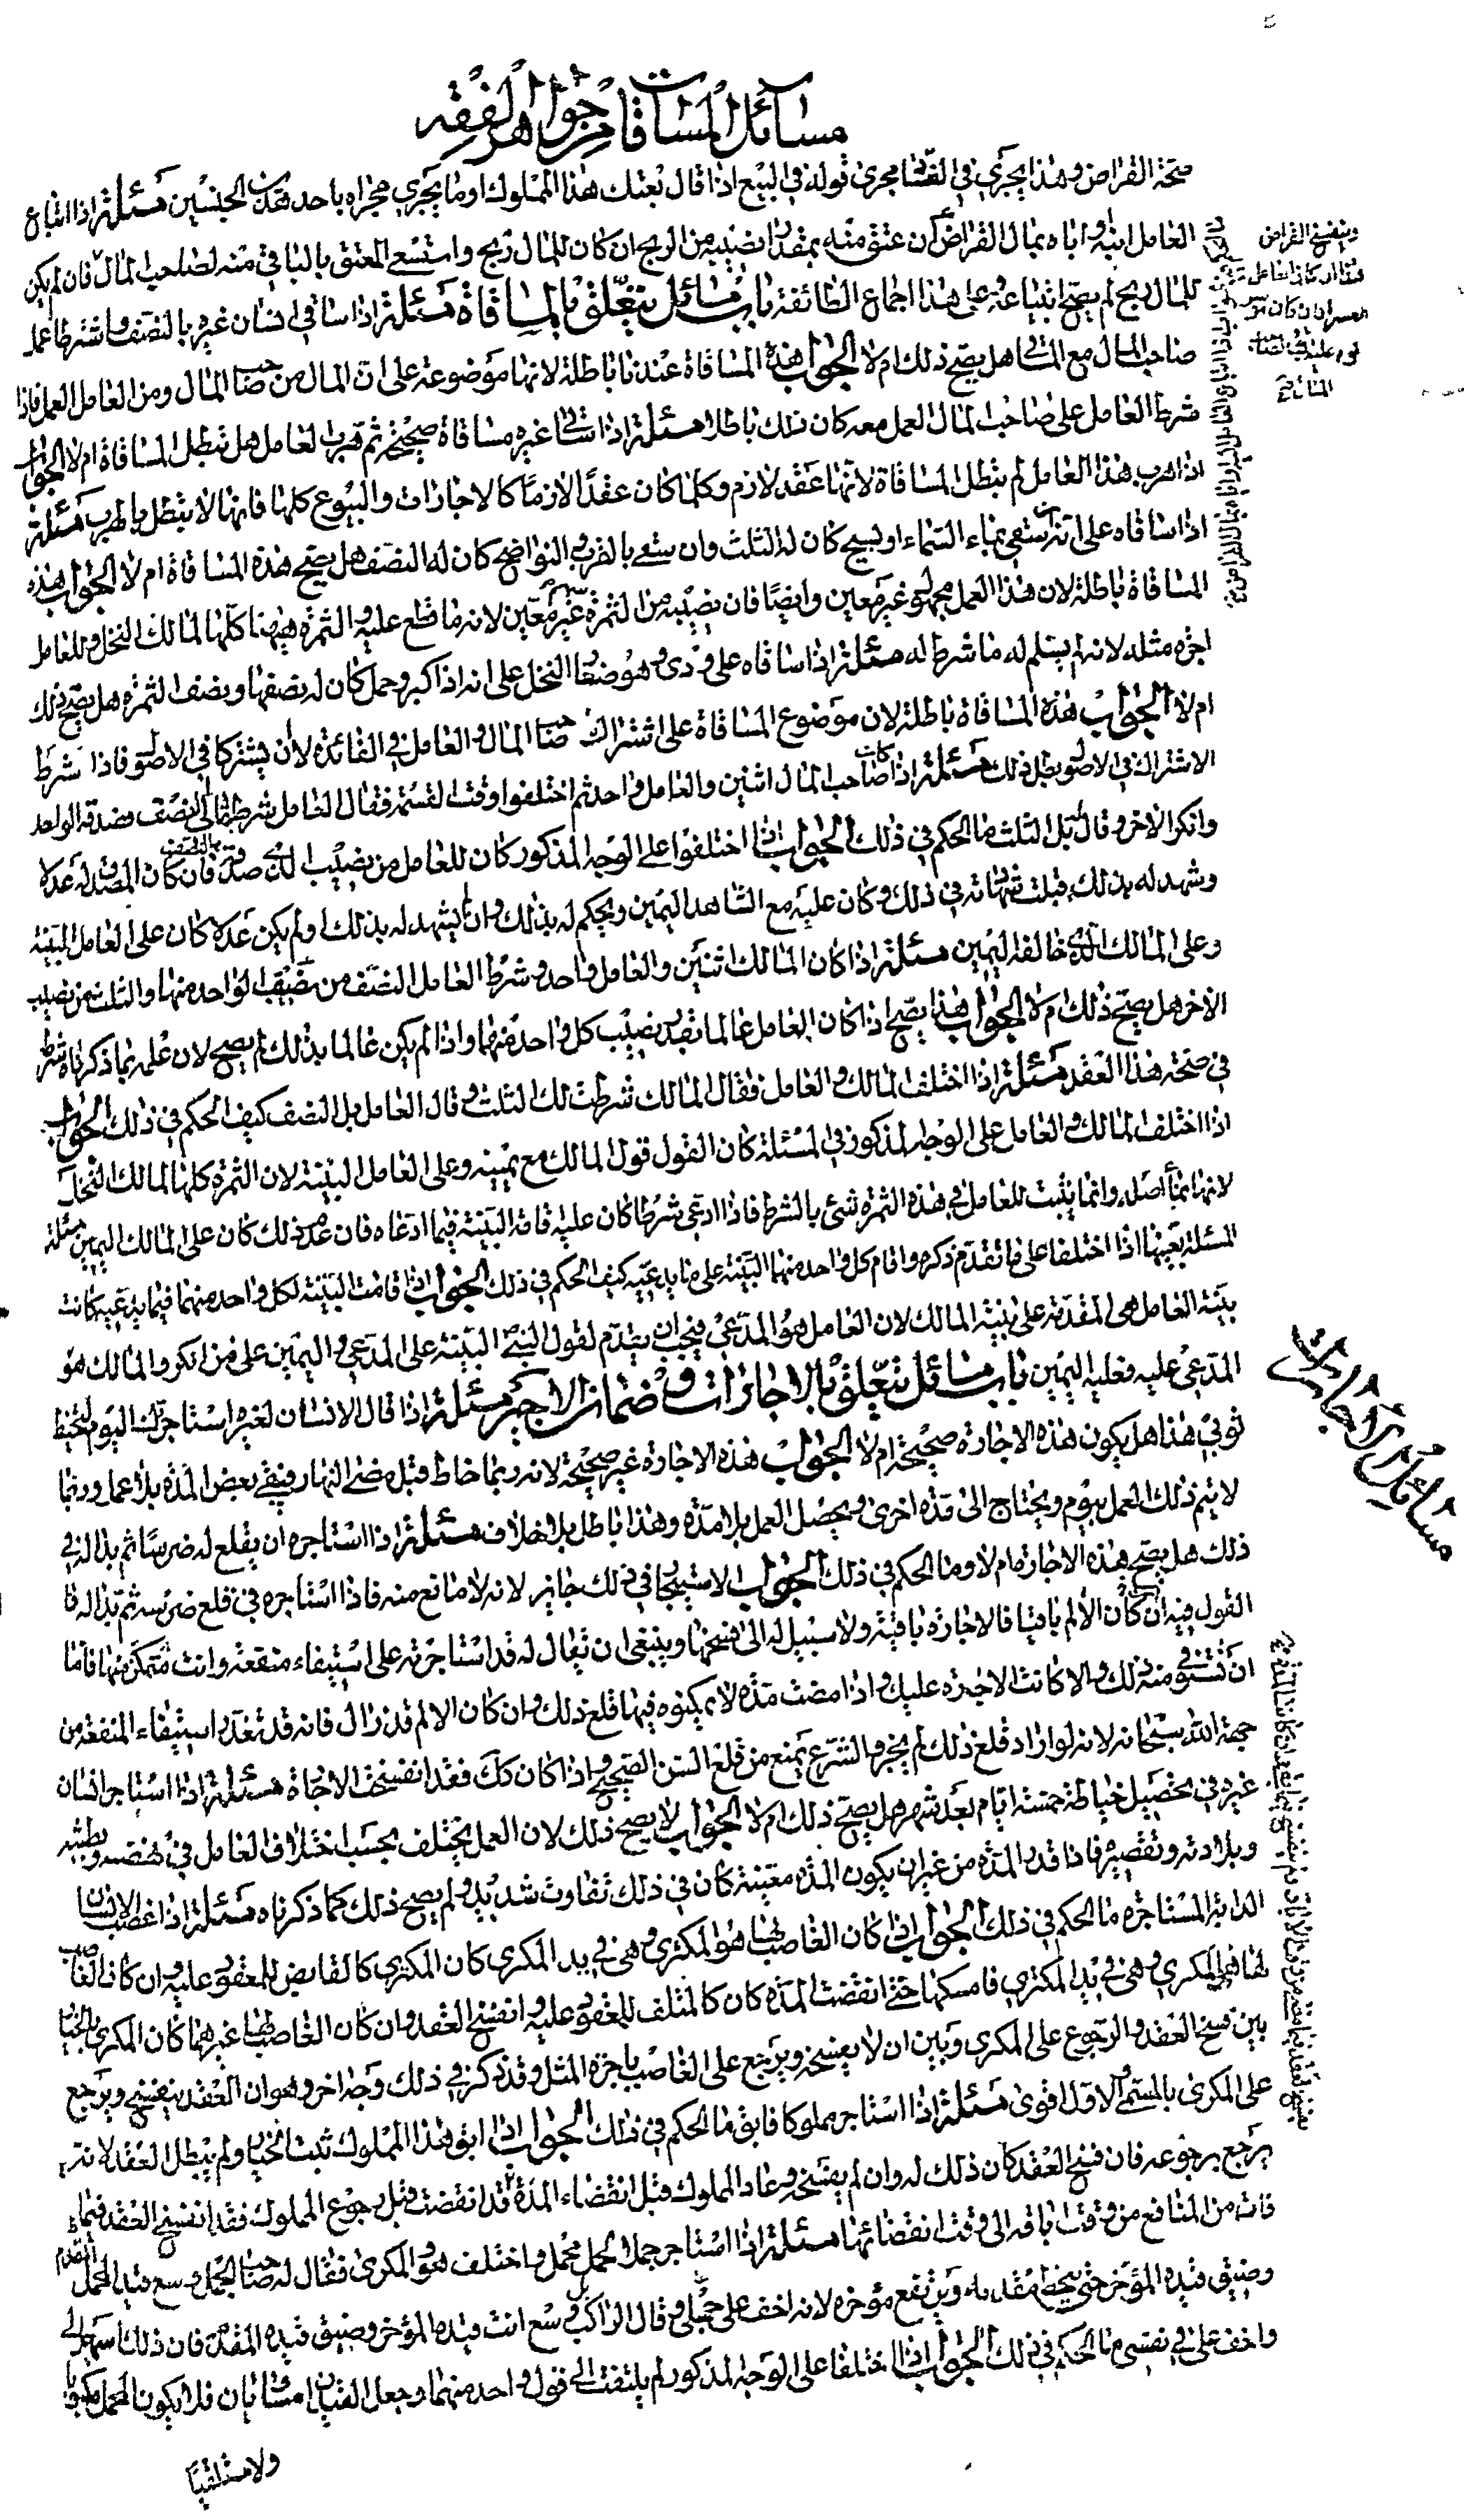 مسائل المساقاة من جواهر الفقه
صحة القراض وهذا يجري في الفساد مجرى قوله في البيع اذا قال بعتك هذا المملوك او ما يجري مجراه باحد هذين الجنسين مسئلة اذا ابتاع
العامل ابنه او اباه بمال القراض عتق منه بمقدار نصيبه من الربح ان كان للمال ربح واستسعى المعتق بالباقي منه لصاحب المال فان لم يكن
للمال ربح لم يصح ابتياعه على هذا اجماع الطائفة باب مسائل تتعلق بالمساقاة مسئلة اذا ساقى انسان غيره بالنصف واشترط عمل
صاحب المال مع المساقى هل يصح ذلك ام لا الجواب هذه المساقاة عندنا باطلة لانها موضوعة على ان المال من صاحب المال ومن العامل العمل فاذا
شرط العامل على صاحب المال العمل معه كان ذلك باطلا مسئلة اذا ساقى غيره مساقاة صحيحة ثم هرب العامل هل تبطل المساقاة ام لا الجواب
اذا هرب هذا العامل لم تبطل المساقاة لانها عقد لازم وكلما كان عقدا لازما كالاجارات والبيوع كلها فانها لا تبطل بالهرب مسئلة
اذا ساقاه على انه ان سقى بماء السماء او بسيح كان له الثلث وان سقى بالغرب والنواضح كان له النصف هل يصح هذه المساقاة ام لا الجواب هذه
المساقاة باطلة لان هذا العمل مجهول غير معين وايضا فان نصيبه من الثمرة غير معين لانه ما قطع عليه والثمرة هيهنا كلها لمالك النخل وللعامل
اجرة مثله لانه لم يسلم له ما شرط له مسئلة اذا ساقاه على ودي وهو صغار النخل على انه اذا كبر وحمل كان له نصفها ونصف الثمرة هل يصح ذلك
ام لا الجواب هذه المساقاة باطلة لان موضوع المساقاة على اشتراك صاحب المال والعامل في الفائدة لا ان يشتركا في الاصول فاذا شرط
الاشتراك في الاصول بطل ذلك مسئلة اذا كان صاحب المال اثنين والعامل واحد ثم اختلفوا وقت القسمة فقال العامل شرطتما لي النصف وصدقه الواحد
وانكر الاخر وقال بل الثلث ما الحكم في ذلك الجواب اذا اختلفوا على الوجه المذكور كان للعامل من نصيب الذي صدقه بالنصف فان كان المصدق له عدلا
وشهد له بذلك قبلت شهادته في ذلك وكان عليه مع الشاهد اليمين ويحكم له بذلك وان لم يشهد له بذلك او لم يكن عدلا كان على العامل البينة
وعلى المالك الذي خالفه اليمين مسئلة اذا كان المالك اثنين والعامل واحد وشرط العامل النصف من نصيب الواحد منهما والثلث من نصيب
الاخر هل يصح ذلك ام لا الجواب هذا يصح اذا كان العامل عالما بقدر نصيب كل واحد منهما واذا لم يكن عالما بذلك لم يصح لان علمه بما ذكرناه شرط
في صحة هذا العقد مسئلة اذا اختلف المالك والعامل فقال المالك شرطت لك الثلث وقال العامل بل النصف كيف الحكم في ذلك الجواب
اذا اختلف المالك والعامل على الوجه المذكور في المسئلة كان القول قول المالك مع يمينه وعلى العامل البينة لان الثمرة كلها لمالك النخل
لانها نماء اصله وانما يثبت للعامل في هذه الثمرة شئ بالشرط فاذا ادعى شرطا كان عليه اقامة البينة فيما ادعاه فان عدم ذلك كان على المالك اليمين مسئلة
المسئلة بعينها اذا اختلفا على ما تقدم ذكره واقام كل واحد منهما البينة على ما يدعيه كيف الحكم في ذلك الجواب اذا قامت البينة لكل واحد منهما فيما يدعيه كانت
بينة العامل هي المقدمة على بينة المالك لان العامل هو المدعي فيجب ان يتقدم لقول النبي البينة على المدعي واليمين على من انكر والمالك هو
المدعى عليه فعليه اليمين باب مسائل تتعلق بالاجارات وضمان الاجير مسئلة اذا قال الانسان لغيره استاجرتك اليوم لتخيط
ثوبي هذا هل يكون هذه الاجارة صحيحة ام لا الجواب هذه الاجارة غير صحيحة لانه ربما خاط قبل مضي النهار فيبقى بعض المدة بلا عمل وربما
لا يتم ذلك العمل بيوم ويحتاج الى مدة اخرى ويحصل العمل بلا مدة وهذا باطل بلا خلاف مسئلة اذا استاجره ان يقلع له ضرسا ثم بدا له في
ذلك هل يصح هذه الاجارة ام لا وما الحكم في ذلك الجواب الاستيجار في ذلك جايز لانه لا مانع منه فاذا استاجره في قلع ضرسه ثم بدا له فا
القول فيه ان كان الالم باقيا فالاجارة باقية ولا سبيل له الى فسخها وينبغي ان يقال له قد استاجرته على استيفاء منفعة وانت متمكن منها فاما
ان تستوفي منه ذلك والا كانت الاجرة عليك واذا مضت مدة لا يمكنه فيها قلع ذلك وان كان الالم قد زال فانه قد تعذر استيفاء المنفعة من
جهة الله سبحانه لانه لو اراد قلع ذلك لم يجز والشرع يمنع من قلع السن الصحيح واذا كان كك فقد انفسخت الاجارة مسئلة اذا استاجر انسان
غيره في تحصيل خياطة خمسة ايام بعد شهر هل يصح ذلك ام لا الجواب لا يصح ذلك لان العمل يختلف بحسب اختلاف العامل في نهضته وبطشه
وبلادته وتقصيره فاذا قدر المدة من غير ان يكون المدة معينة كان في ذلك تفاوت شديد ولم يصح ذلك كما ذكرناه مسئلة اذا غصب الانسان
الدابة المستاجرة ما الحكم في ذلك الجواب اذا كان الغاصب لها هو المكتري وهي في يد المكري كان المكتري كالقابض للمعقود عليه وان كان الغاصب
لها هو المكري وهي في يد المكتري فامسكها حتى انقضت المدة كان كالمتلف للمعقود عليه وانفسخ العقد وان كان الغاصب لها غيرهما كان المكري بالخيار
بين فسخ العقد والرجوع على المكري وبين ان لا يفسخه ويرجع على الغاصب باجرة المثل وقد ذكر في ذلك وجه اخر وهو ان العقد ينفسخ ويرجع
على المكري بالمسمى والاول اقوى مسئلة اذا استاجر مملوكا فابق ما الحكم في ذلك الجواب اذا ابق هذا المملوك ثبت الخيار ولم يبطل العقد لانه
يرجع برجوعه فان فسخ العقد كان ذلك له وان لم يفسخ وعاد المملوك قبل انقضاء المدة قد انقضت قبل رجوع المملوك فقد انفسخ العقد فيما
فات من المنافع من وقت اباقه الى وقت انقضائها مسئلة اذا استاجر جملا لحمل محمل واختلف هو والمكري فقال له صاحب الجمل وسع قيد المحمل المقدم
وضيق قيده المؤخر حتى ينخط مقدمه ويرتفع مؤخره لانه اخف على جملي وقال الراكب بل وسع انت قيده المؤخر وضيق قيده المقدم فان ذلك اسهل لي
واخف على نفسي ما الحكم في ذلك الجواب اذا اختلفا على الوجه المذكور لم يلتفت الى قول واحد منهما وجعل القيدان متساويان فلا يكون المحمل مكبوبا
ولا مستلقيا
وينفسخ القراض
مسائل الاجارات